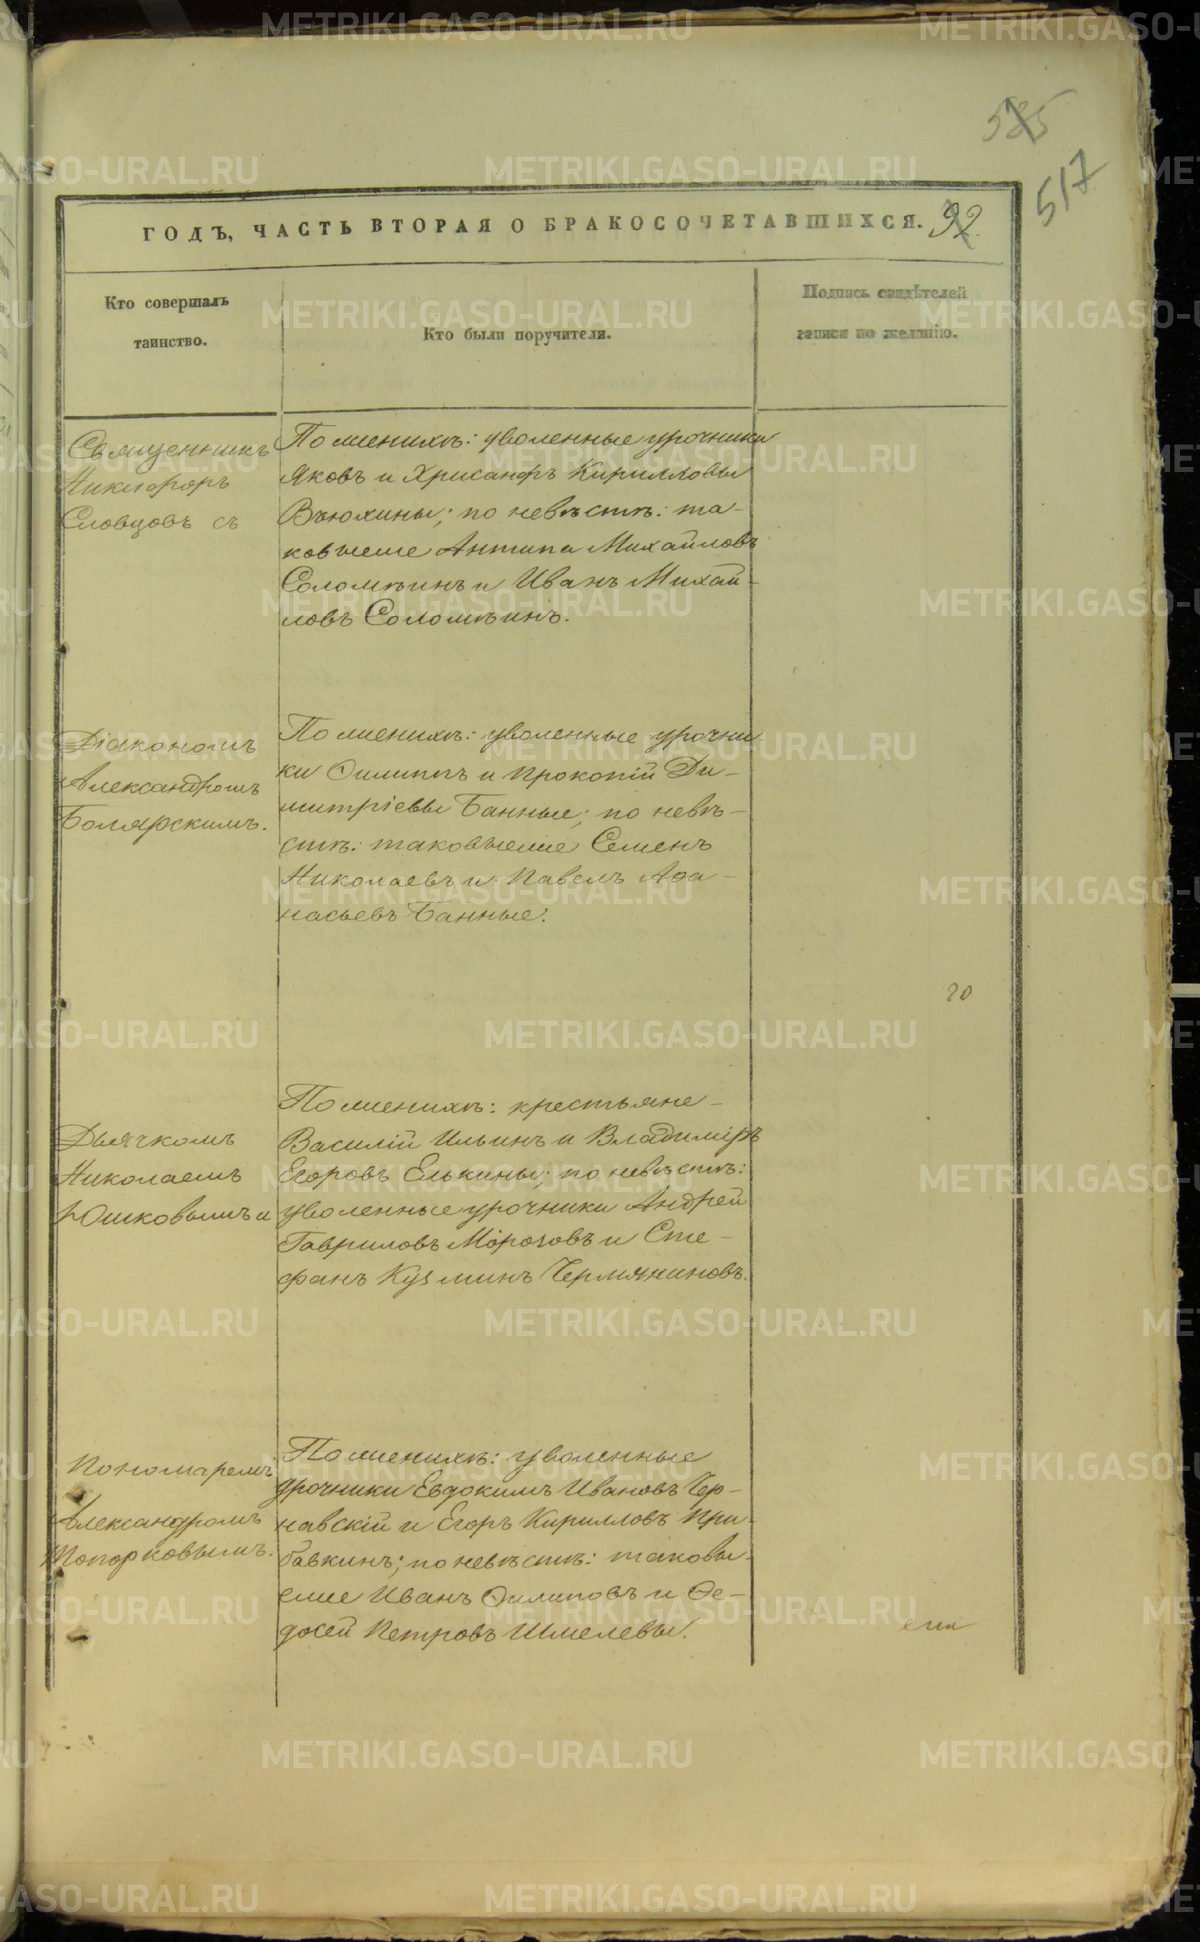 585
517
ГОДЪ, ЧАСТЬ ВТОРАЯ О БРАКОСОЧЕТАВШИХСЯ. 92
Кто совершалъ
таинство.
Кто были поручители.
Подпись свидѣтелей
записи по желанію.
Священникъ
Никифоръ
Словцовъ съ
По женихѣ: уволенные урочники
Яковъ и Хрисанфъ Кирилловы
Вьюхины; по невѣстѣ: та-
ковыеже Антипа Михайловъ
Соломѣинъ и Иванъ Михай-
ловъ Соломѣинъ.
Діакономъ
Александромъ
Боярскимъ.
По женихѣ: уволенные урочни-
ки Филиппъ и Прокопій Ди-
митріевы Банные; по невѣ-
стѣ: таковыеже Семенъ
Николаевъ и Павелъ Аѳа-
насьевъ Банные.
20
Дьячкомъ
Николаемъ
Юшковымъ и
По женихѣ: крестьяне
Василій Ильинъ и Владимірѣ
Егоровъ Елькины; по невѣстѣ:
уволенные урочники Андрей
Гавриловъ Морозовъ и Сте-
фанъ Кузминъ Чермяниновъ.
Пономаремъ
Александромъ
Топорковымъ.
По женихѣ: уволенные
урочники Евдокимъ Ивановъ Чер-
навскій и Егоръ Кирилловъ При-
бавкинъ; по невѣстѣ: таковы-
еже Иванъ Филиповъ и Ѳе-
досей Петровъ Шмелевы.
METRIKI.GASO-URAL.RU